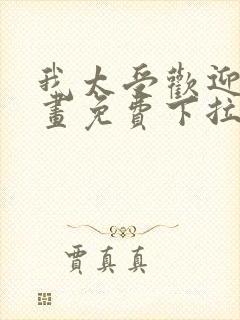 我太受歡迎
畫免費下拉
賈真真